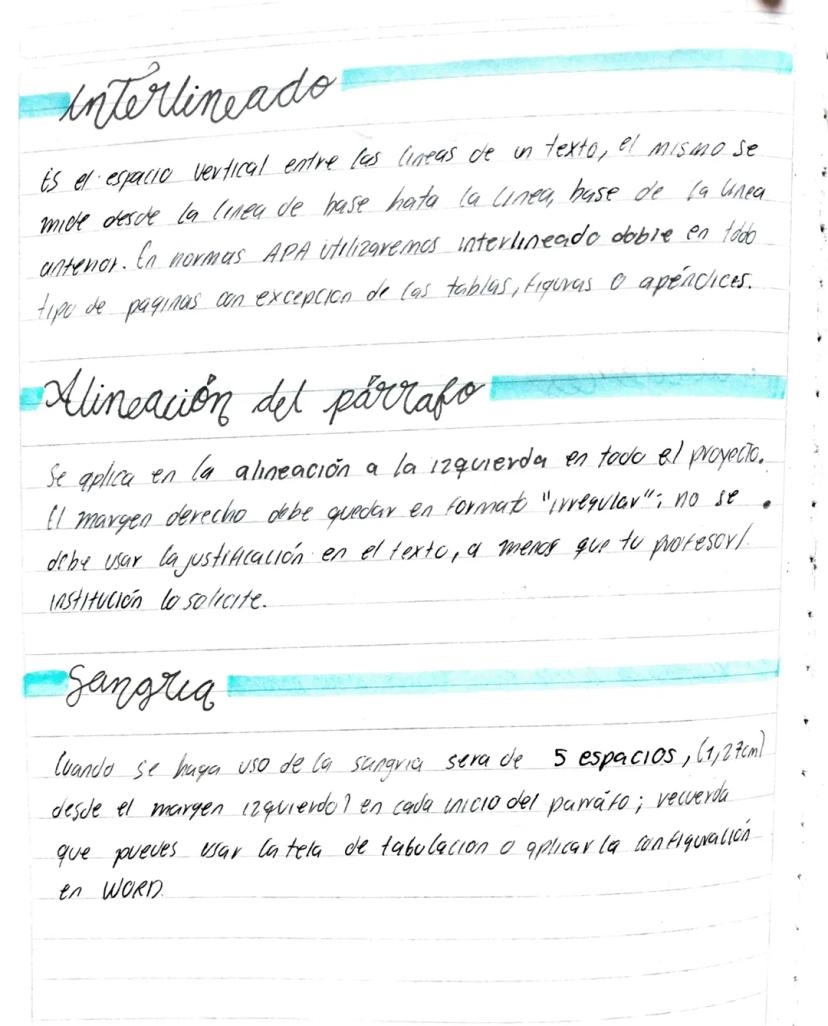 Interlineado
Es el espacio vertical entre las lineas de un texto, el mismo se
mide desde la linea de base hata la linea, base de la linea
anterior. En normas APA utilizaremos interlineado doble en todo
tipo de paginas con excepcion de las tablas, figuras o apéndices.
Alineación del párrafo
Se aplica en la alineación a la izquierda en todo el proyecto.
El margen derecho debe quedar en formato "irregular"; no se
debe usar la justificación en el texto, a menos que tu profesor/
institución lo solicite.
Sangria
Cuando se haga uso de la sangria sera de 5 espacios, (1,27cm)
desde el margen izquierdo) en cada inicio del parráfo; recuerda
que pueves usar la tela de tabulacion o aplicar la configuración
en WORD.